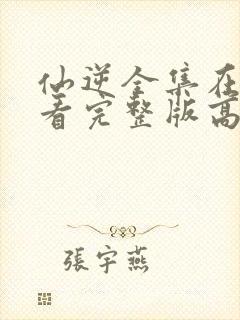 仙逆全集在
看完整版高
張宇燕